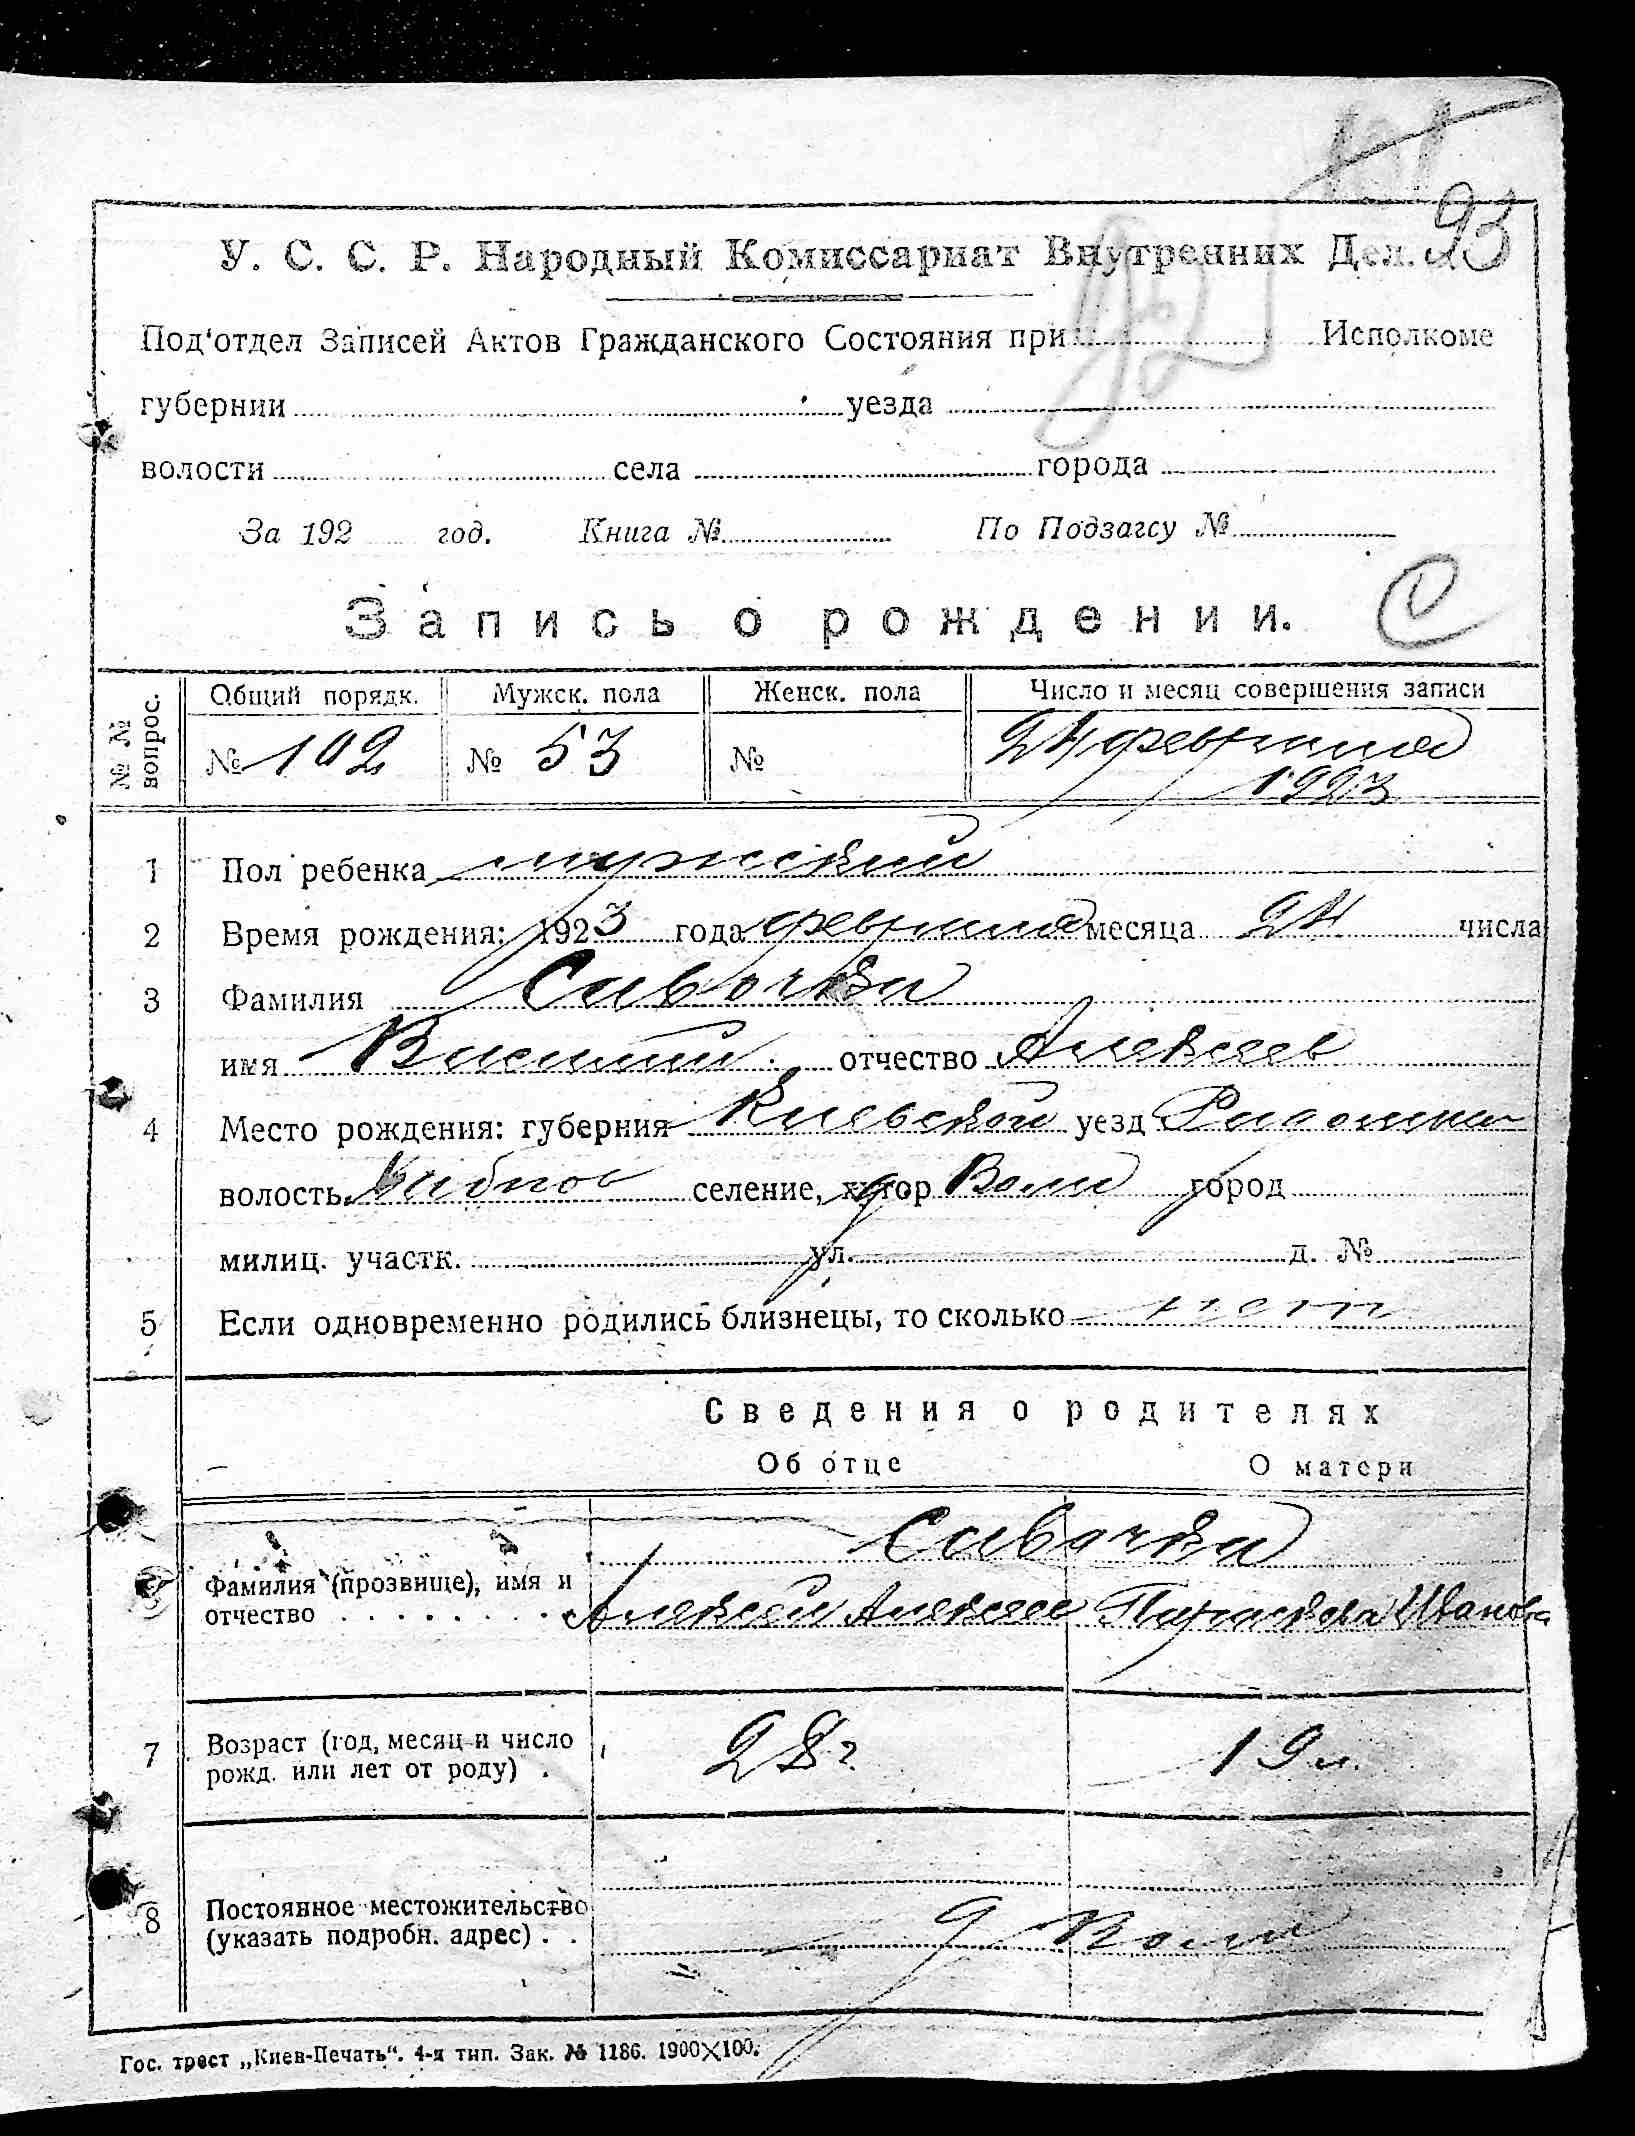 93
У. С. С. Р. Народный Комиссариат Внутренних Дел.
92
Под'отдел Записей Актов Гражданского Состояния при Исполкоме
губернии уезда
волости села города
За 192 год. Книга № По Подзагсу №
Запись о рождении.
№№ вопрос. Общий порядк. Мужск. пола Женск. пола Число и месяц совершения записи
№ 102 № 53 № 24 февраля
1923
1 Пол ребенка мужский
2 Время рождения: 1923 года февраля месяца 24 числа
3 Фамилия Савочка
имя Василий отчество Алексеев
4 Место рождения: губерния Киевской уезд
волость селение, хутор город
милиц. участк. ул. д. №
5 Если одновременно родились близнецы, то сколько нет
Сведения о родителях
Об отце О матери
Савочка
Фамилия (прозвище), имя и
отчество . . . . . . . . Алексей Алексеев Параскева Иванова
7 Возраст (год, месяц и число
рожд. или лет от роду) . 28 г. 19 л.
8 Постоянное местожительство
(указать подробн. адрес) . .
Гос. трест „Киев-Печать“. 4-я тип. Зак. № 1186. 1900×100.